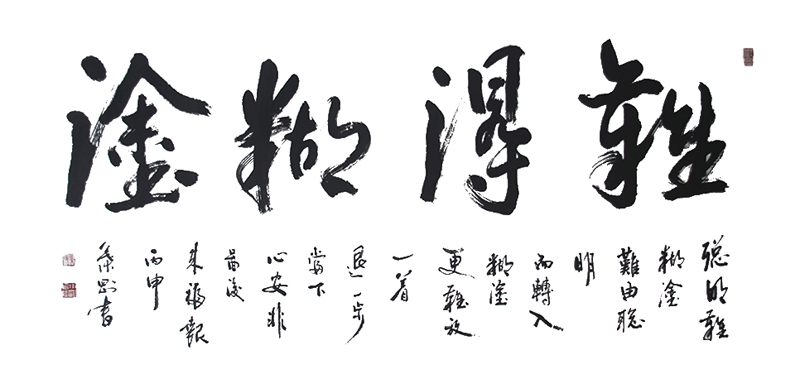 難得糊塗
聰明難
糊塗
難由聰
明
而轉入
糊塗
更難放
一着
退一步
當下
心安非
圖後
來福報
丙申
書